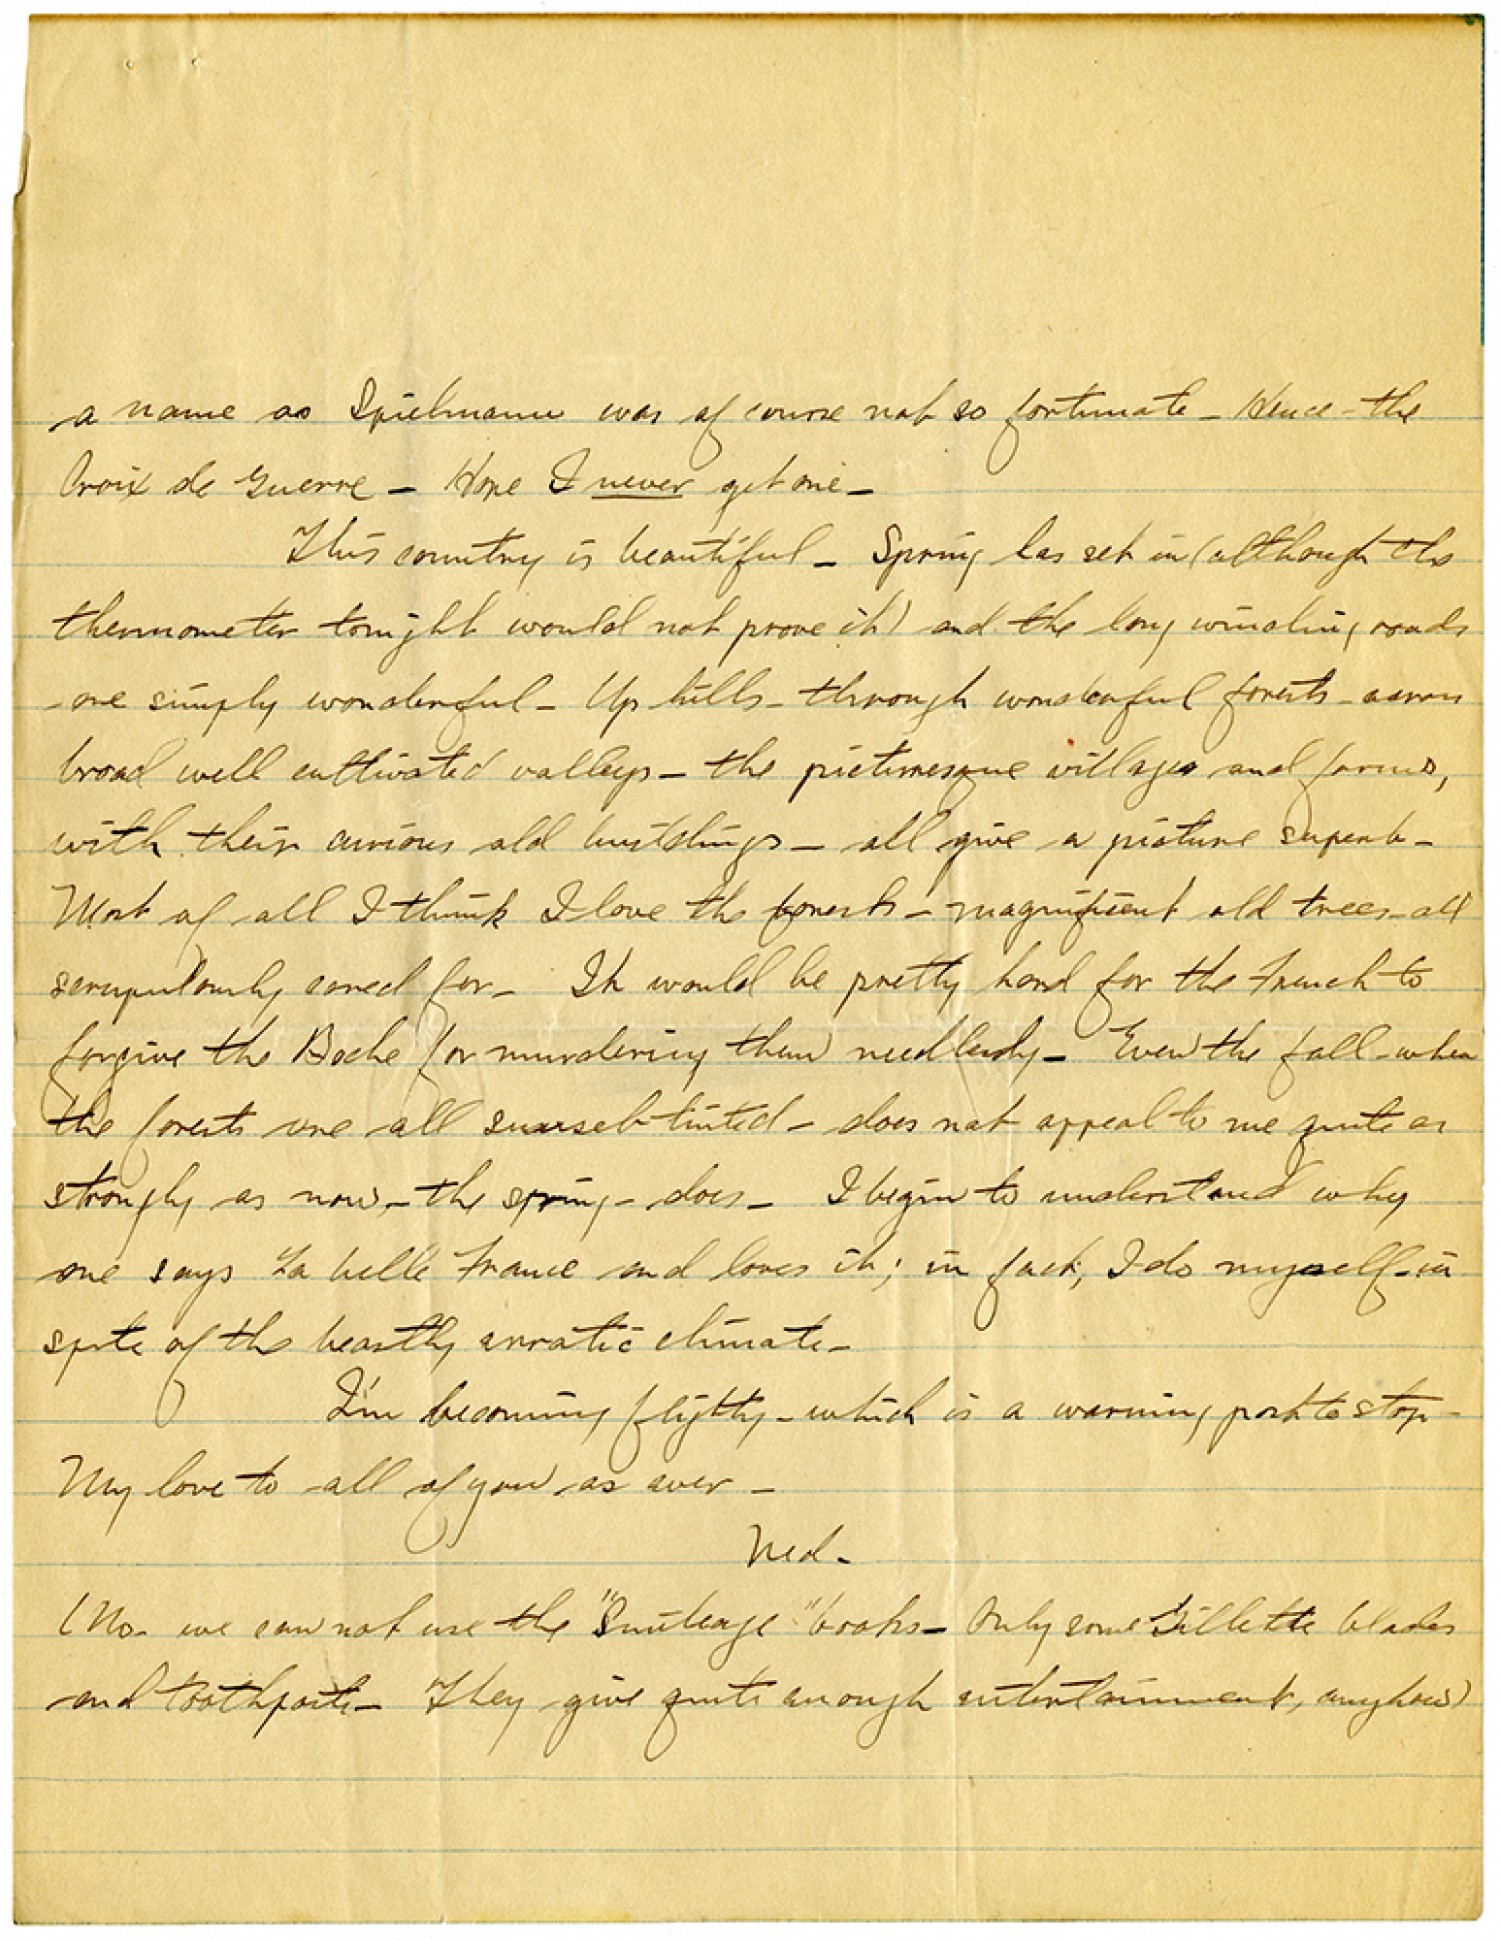 a name as Spielmann was of course not so fortunate - Hence - the
Croix de Guerre - Hope I never get one -
This country is beautiful - Spring has set in (although the
thermometer tonight would not prove it) and the long winding roads
are simply wonderful - Up hills - through wonderful forests - across
broad well cultivated valleys - the picturesque villages and farms,
with their curious old buildings - all give a picture superb -
Most of all I think I love the forests - magnificent old trees - all
scrupulously cared for - It would be pretty hard for the French to
forgive the Boche for murdering them needlessly - Even the fall - when
the forests are all sunset-tinted - does not appeal to me quite as
strongly as now - the spring - does - I begin to understand why
one says La belle France and loves it; in fact, I do myself - in
spite of the beastly erratic climate -
I'm becoming flighty - which is a warning to stop -
My love to all of you as ever -
Ned -
(No - we can not use the "Smileage" books - Only some Gillette blades
and toothpaste - They give quite enough entertainment, anyhow)